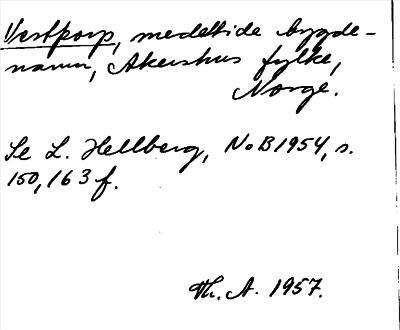 Vestþorp, medeltida bygde-
namn, Akershus fylke,
Norge.
Se L. Hellberg, NoB 1954, s.
150, 163 f.
Th. A. 1957.